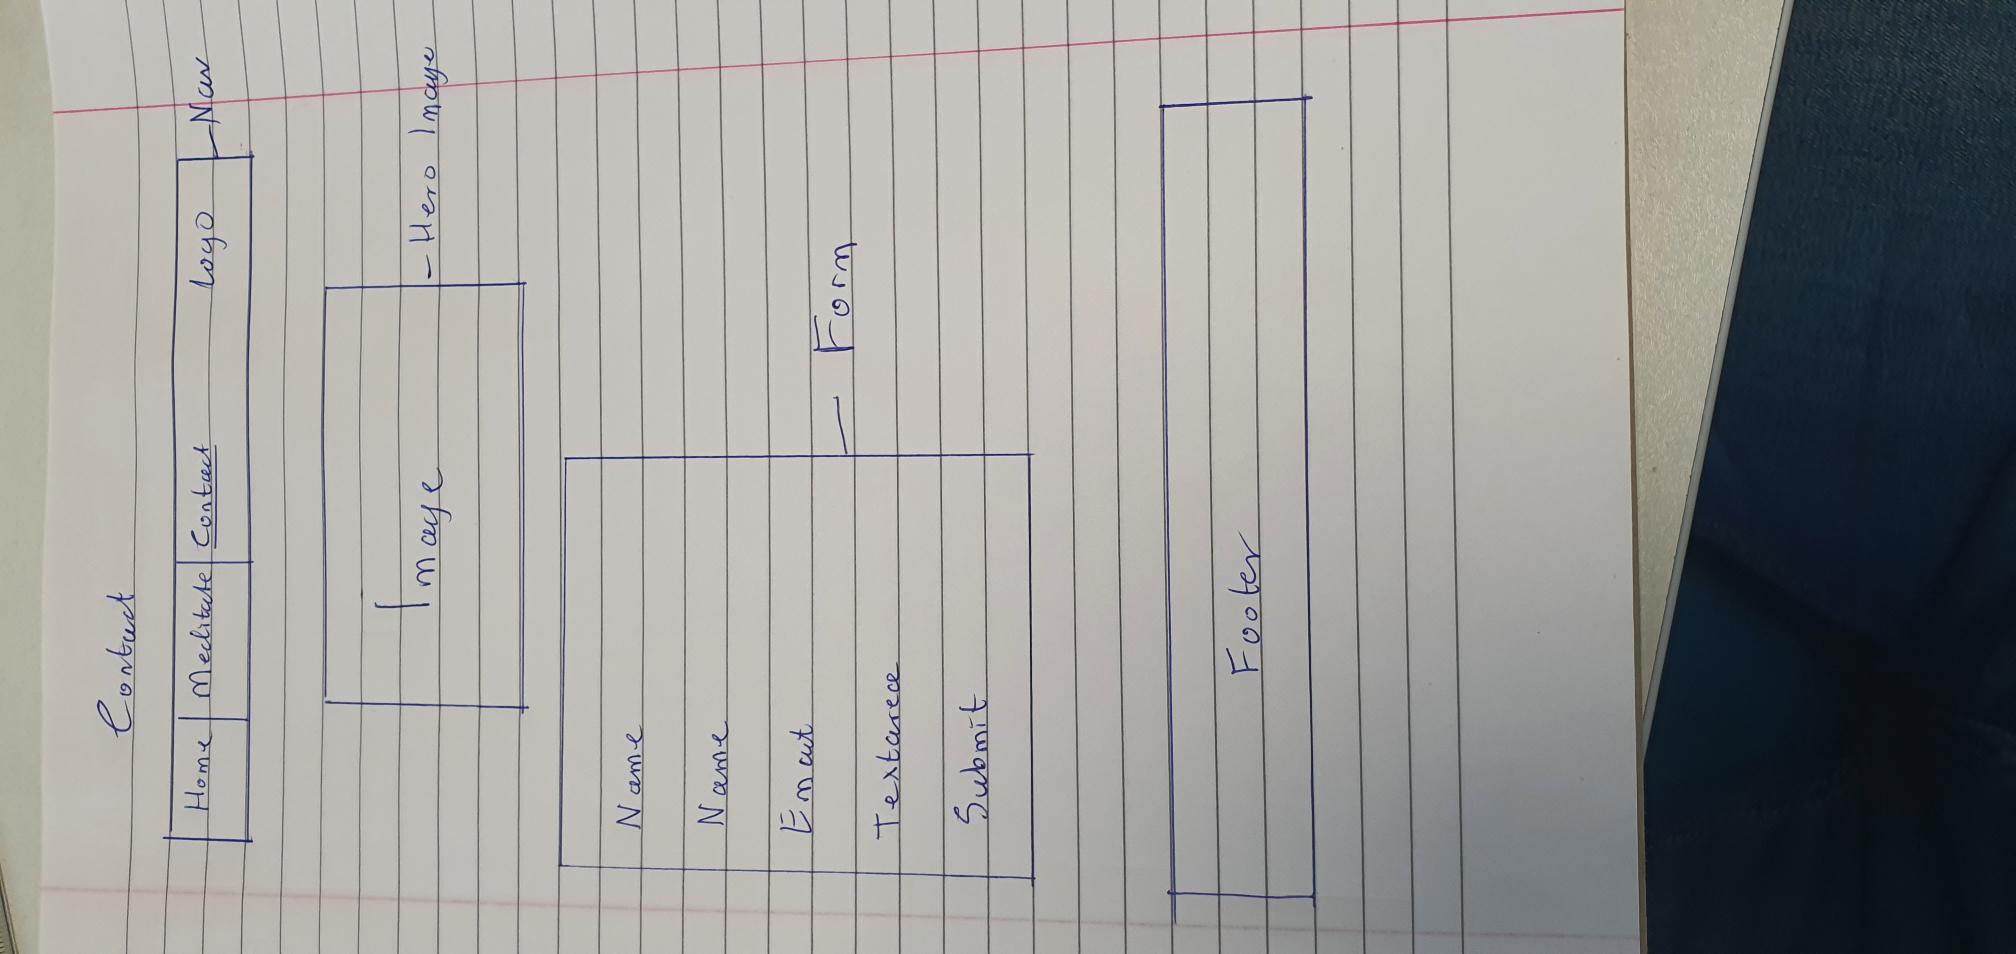 Contact
Home Meditate Contact Logo - Nav
Image - Hero Image
Name
Name
Email
Textarea
Submit
- Form
Footer